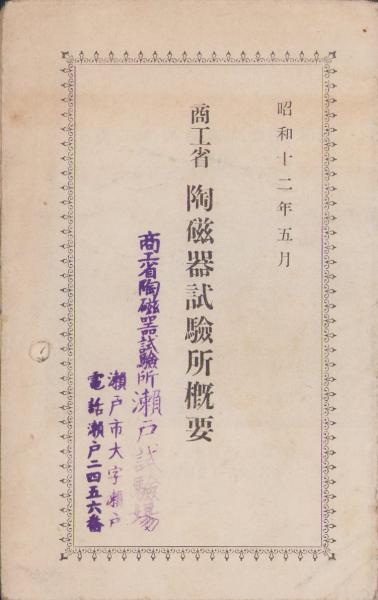 昭和十二年五月
商工省 陶磁器試驗所概要
商工省陶磁器試驗所瀬戸試驗場
瀬戸市大字瀬戸
電話瀬戸二四五六番